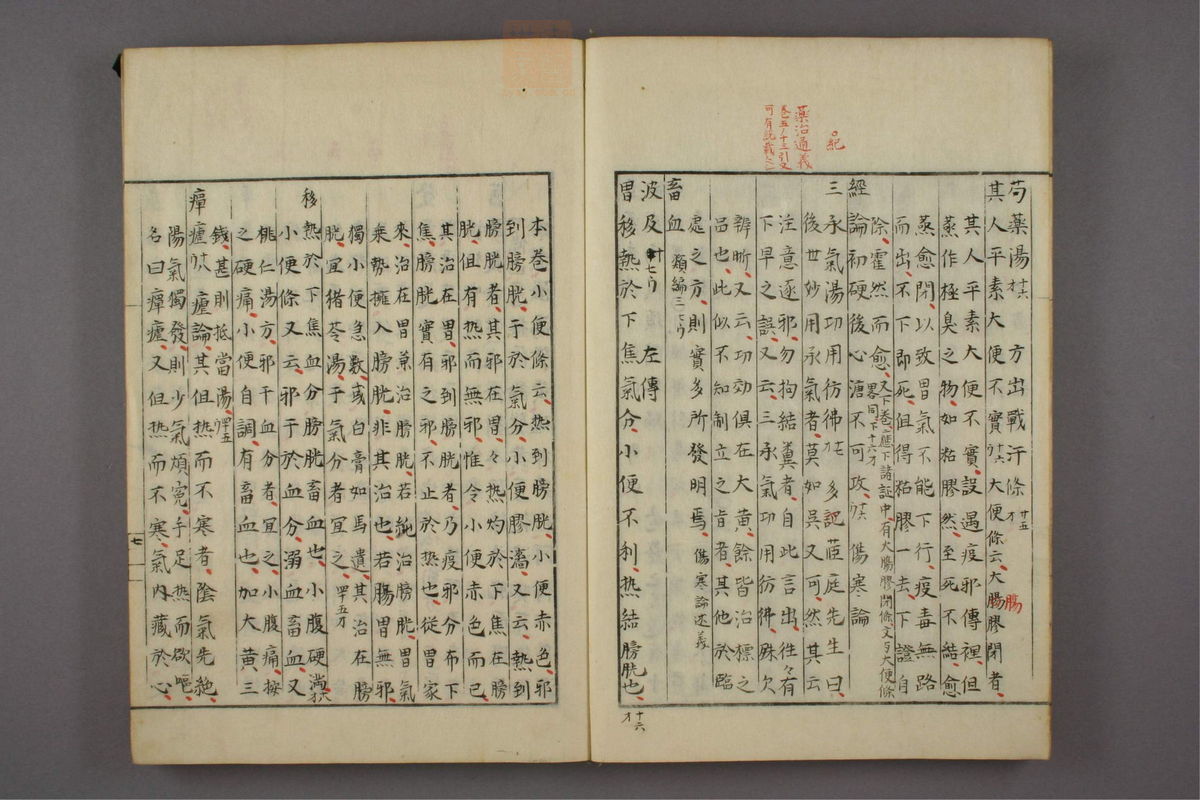 紀
藥治通義
芍藥湯 方出戰汗條
其人平素大便不實 大便條云大腸膠閉者
其人平素大便不實設遇疫邪傳裡但
蒸作極臭之物如粘膠然至死不結愈
蒸愈閉以致胃氣不能下行疫毒無路
而出不下即死但得粘膠一去下證自
除霍然而愈
經論初硬後心溏不可攻 傷寒論
三承氣湯功用彷彿 多記茝庭先生曰
後世妙用承氣者莫如吳又可然其云
注意逐邪勿拘結糞者自此言出徃々有
下早之誤又云三承氣功用彷彿殊欠
辨晰又云功効俱在大黃餘皆治標之
品也此似不知制立之肯者其他於臨
處之方則實多所發明焉 傷寒論述義
畜血 類編三
波及 左傳
胃移熱於下焦氣分小便不利热結膀胱也
十六
本巻小便條云热到膀胱小便赤色邪
到膀胱于於氣分小便膠濇又云熱到
膀胱者其邪在胃々热灼於下焦在膀
胱但有热而無邪惟令小便赤色而已
其治在胃邪到膀胱者乃疫邪分布下
焦膀胱實有之邪不止於热也從胃家
來治在胃兼治膀胱若純治膀胱胃氣
乗勢擁入膀胱非其治也若腸胃無邪
獨小便急數或白膏如馬遺其治在膀
胱宜猪苓湯于氣分者宜之
移熱於下焦血分膀胱畜血也小腹硬満
小便條又云邪于於血分溺血畜血又
桃仁湯方邪干血分者宜之小腹痛按
之硬痛小便自調有畜血也加大黃三
錢甚則抵當湯
瘴瘧 瘧論其但热而不寒者陰氣先絶
陽氣獨發則少氣煩寃手足热而欲嘔
名曰瘅瘧又但热而不寒氣内藏於心